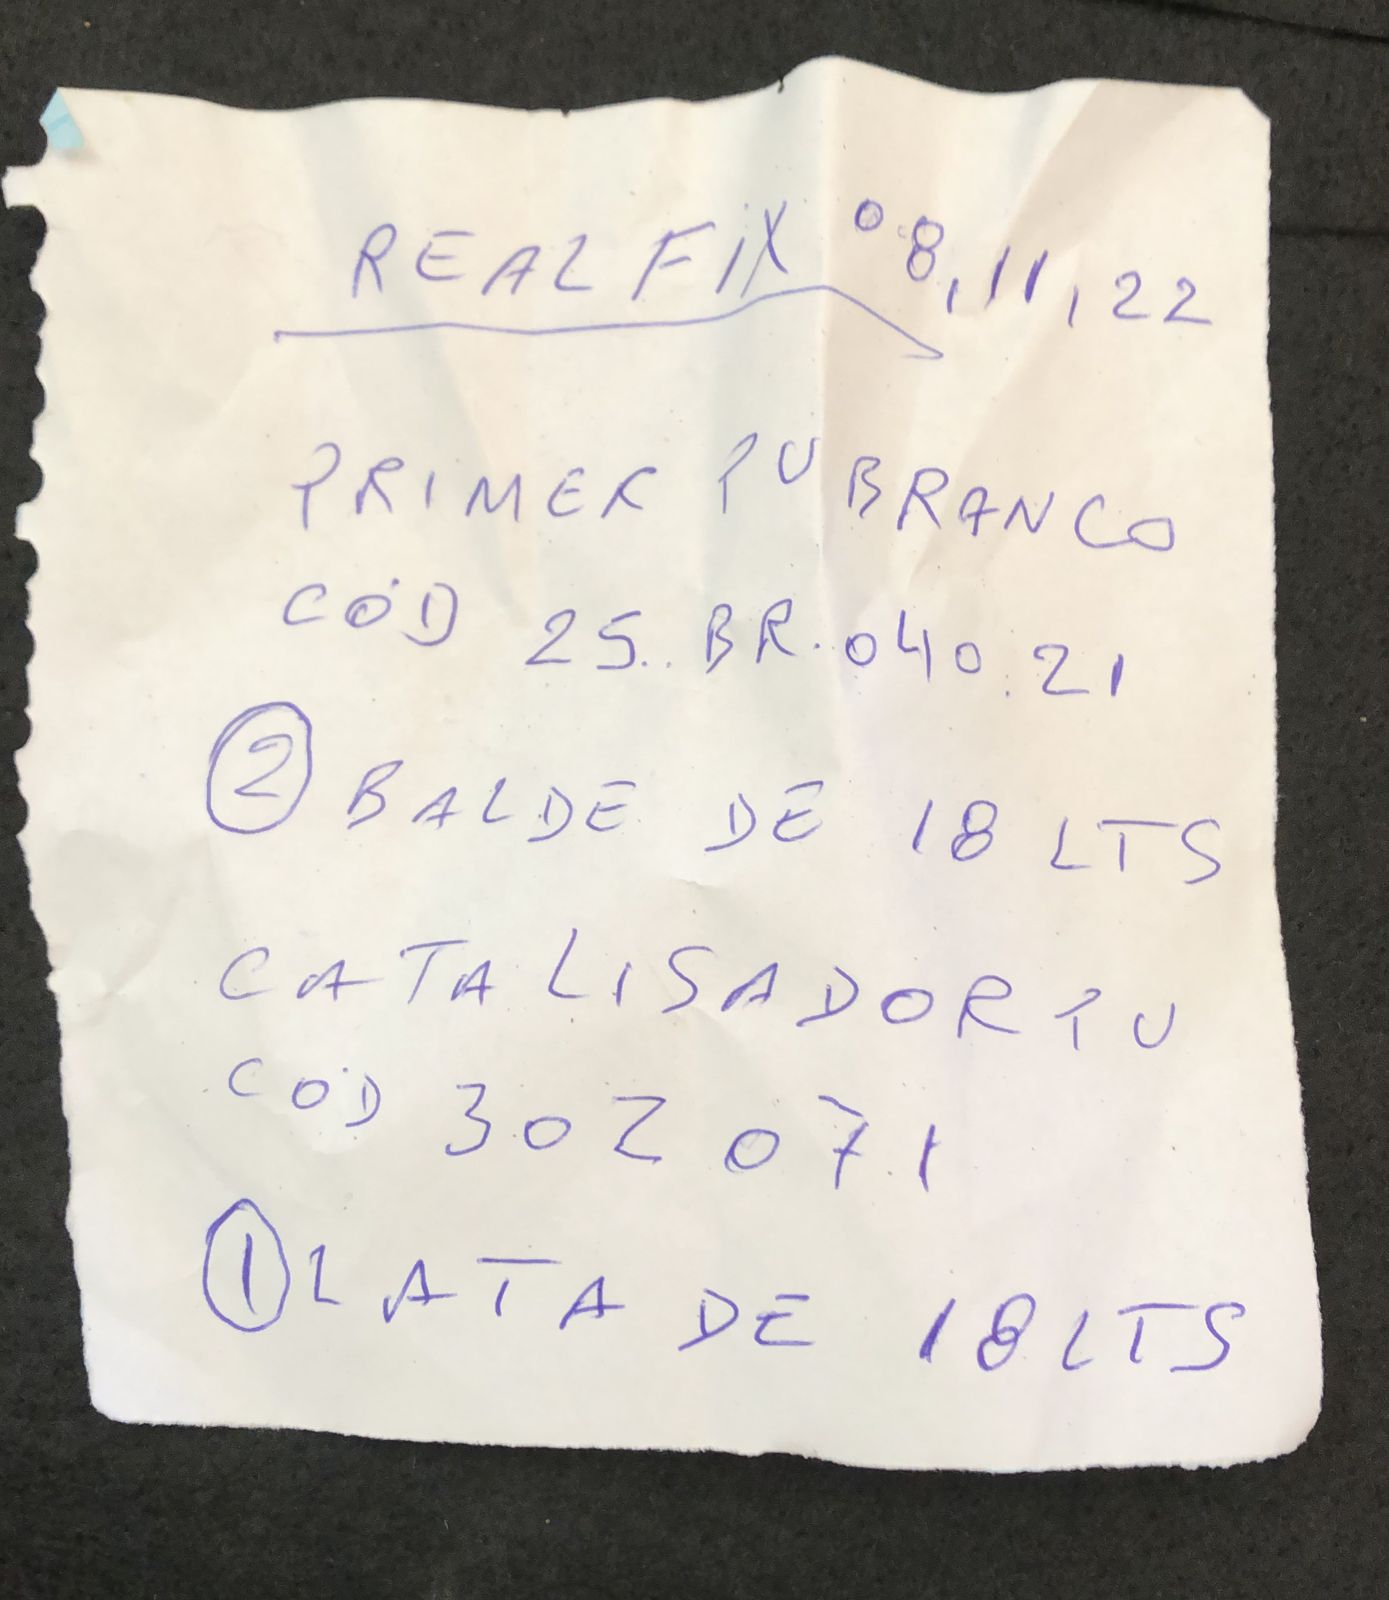 REALFIX 08,11,22
PRIMER PU BRANCO
CÓD 25.BR.040.21
2 BALDE DE 18 LTS
CATALISADOR PU
CÓD 302 071
1 LATA DE 18 LTS